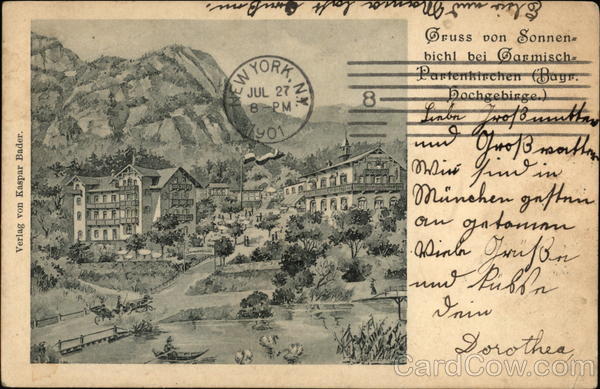 Gruss von Sonnen=
bichl bei Garmisch=
Partenkirchen (Bayr.
Hochgebirge.)
Liebe Großmutter
und Großvatter
Wir sind in
München gestern
an getomen
Viele Grüße
und Küsse
dein
Dorothea
NEW YORK, N.Y.
JUL 27
8-PM
1901
8
Verlag von Kaspar Bader.
CardCow.com